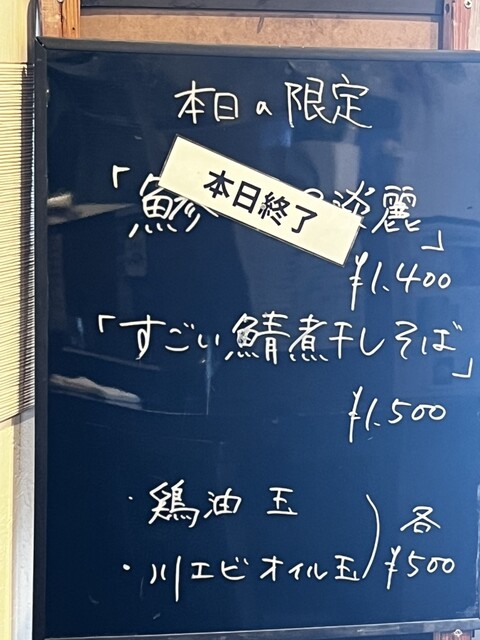 本日の限定
「鯵 淡麗」
本日終了
¥1,400
「すごい鯖煮干しそば」
¥1,500
・鶏油玉
・川エビオイル玉
各
¥500